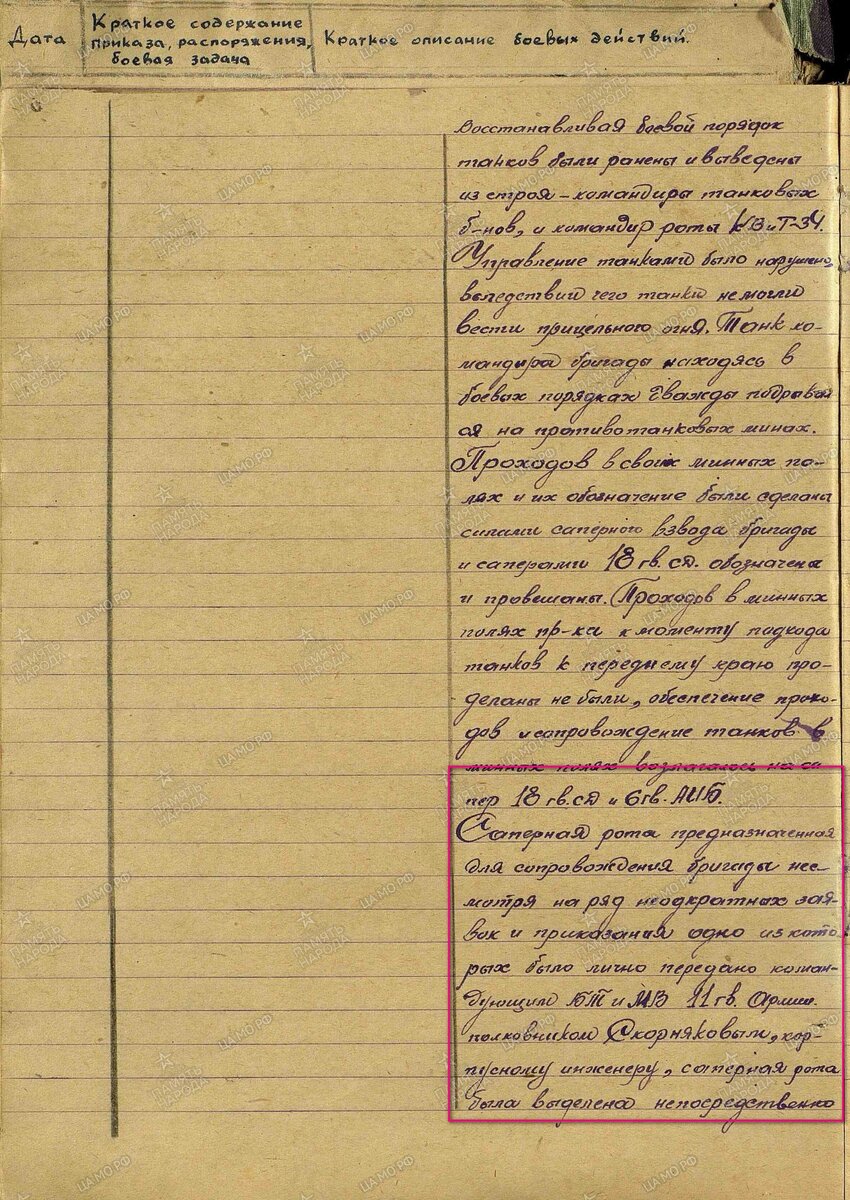 Дата
Краткое содержание
приказа, распоряжения,
боевая задача
Краткое описание боевых действий.
Восстанавливая боевой порядок
танков были ранены и выведены
из строя – командиры танковых
б-нов, и командир роты КВ и Т-34.
Управление танками было нарушено,
вследствии чего танки не могли
вести прицельного огня. Танк ко-
мандира бригады находясь в
боевых порядках дважды подрывал
ся на противотанковых минах.
Проходов в своих минных по-
лях и их обозначение были сделаны
силами саперного взвода бригады
и саперами 18 гв. сд. обозначены
и провешаны. Проходов в минных
полях пр-ка к моменту подхода
танков к переднему краю про-
деланы не были, обеспечение прохо-
дов и сопровождение танков в
минных полях возлагалось на са
пер 18 гв. сд и 6 гв. АИБ.
Саперная рота предназначенная
для сопровождения бригады нес-
мотря на ряд неодкратных зая-
вок и приказания одно из кото
рых было лично передано коман-
дующим БТ и МВ 11 гв. Армии.
полковником Скорняковым, кор-
пусному инженеру, саперная рота
была выделена непосредственно
ПАМЯТЬ
НАРОДА
ЦАМО.РФ